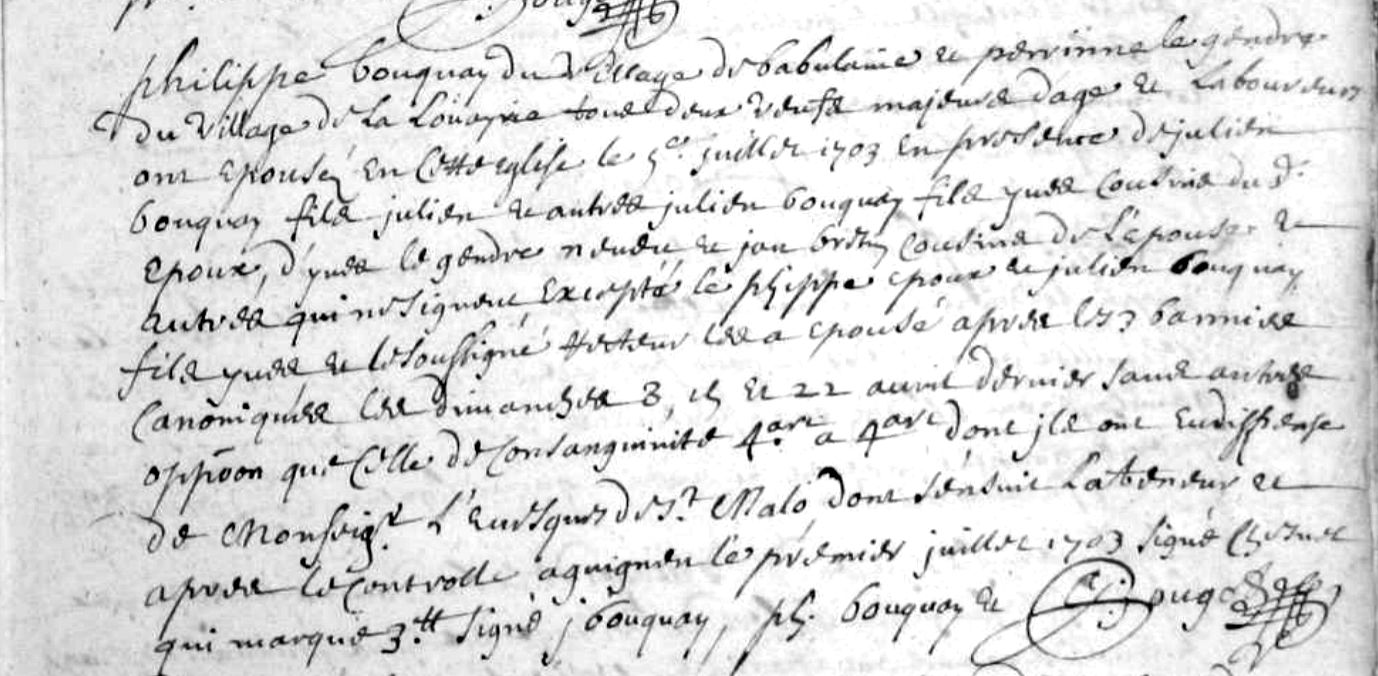 philippe bouquay du village de babulaine et perrinne le gendre
du village de la Louayrie tous deux veufs majeurs dage et Laboureurs
ont Epousé En Cette Eglise le 5e juillet 1703 En presence de julien
bouquay fils julien et autres julien bouquay fils yves Cousins du d.
Epoux, d'yves le gendre neveu et jan Cousins de L'epouse et
autres qui ne signent, Excepté le phippe epoux et julien bouquay
fils yves et le soussigné Recteur les a epousé apres les 3 bannies
Canoniques les dimanches 8, 15 et 22 avril dernier sans autres
oppõon que Celle de Consanguinité 4art a 4art dont jls ont Eu dispense
de Monseigr L'Evesque de St Malo dont s'ensuit La teneur et
apres le Controlle a guignen le premier juillet 1703 signé Chesnel
qui marque 3tt signé j bouquay, ph. bouquay et